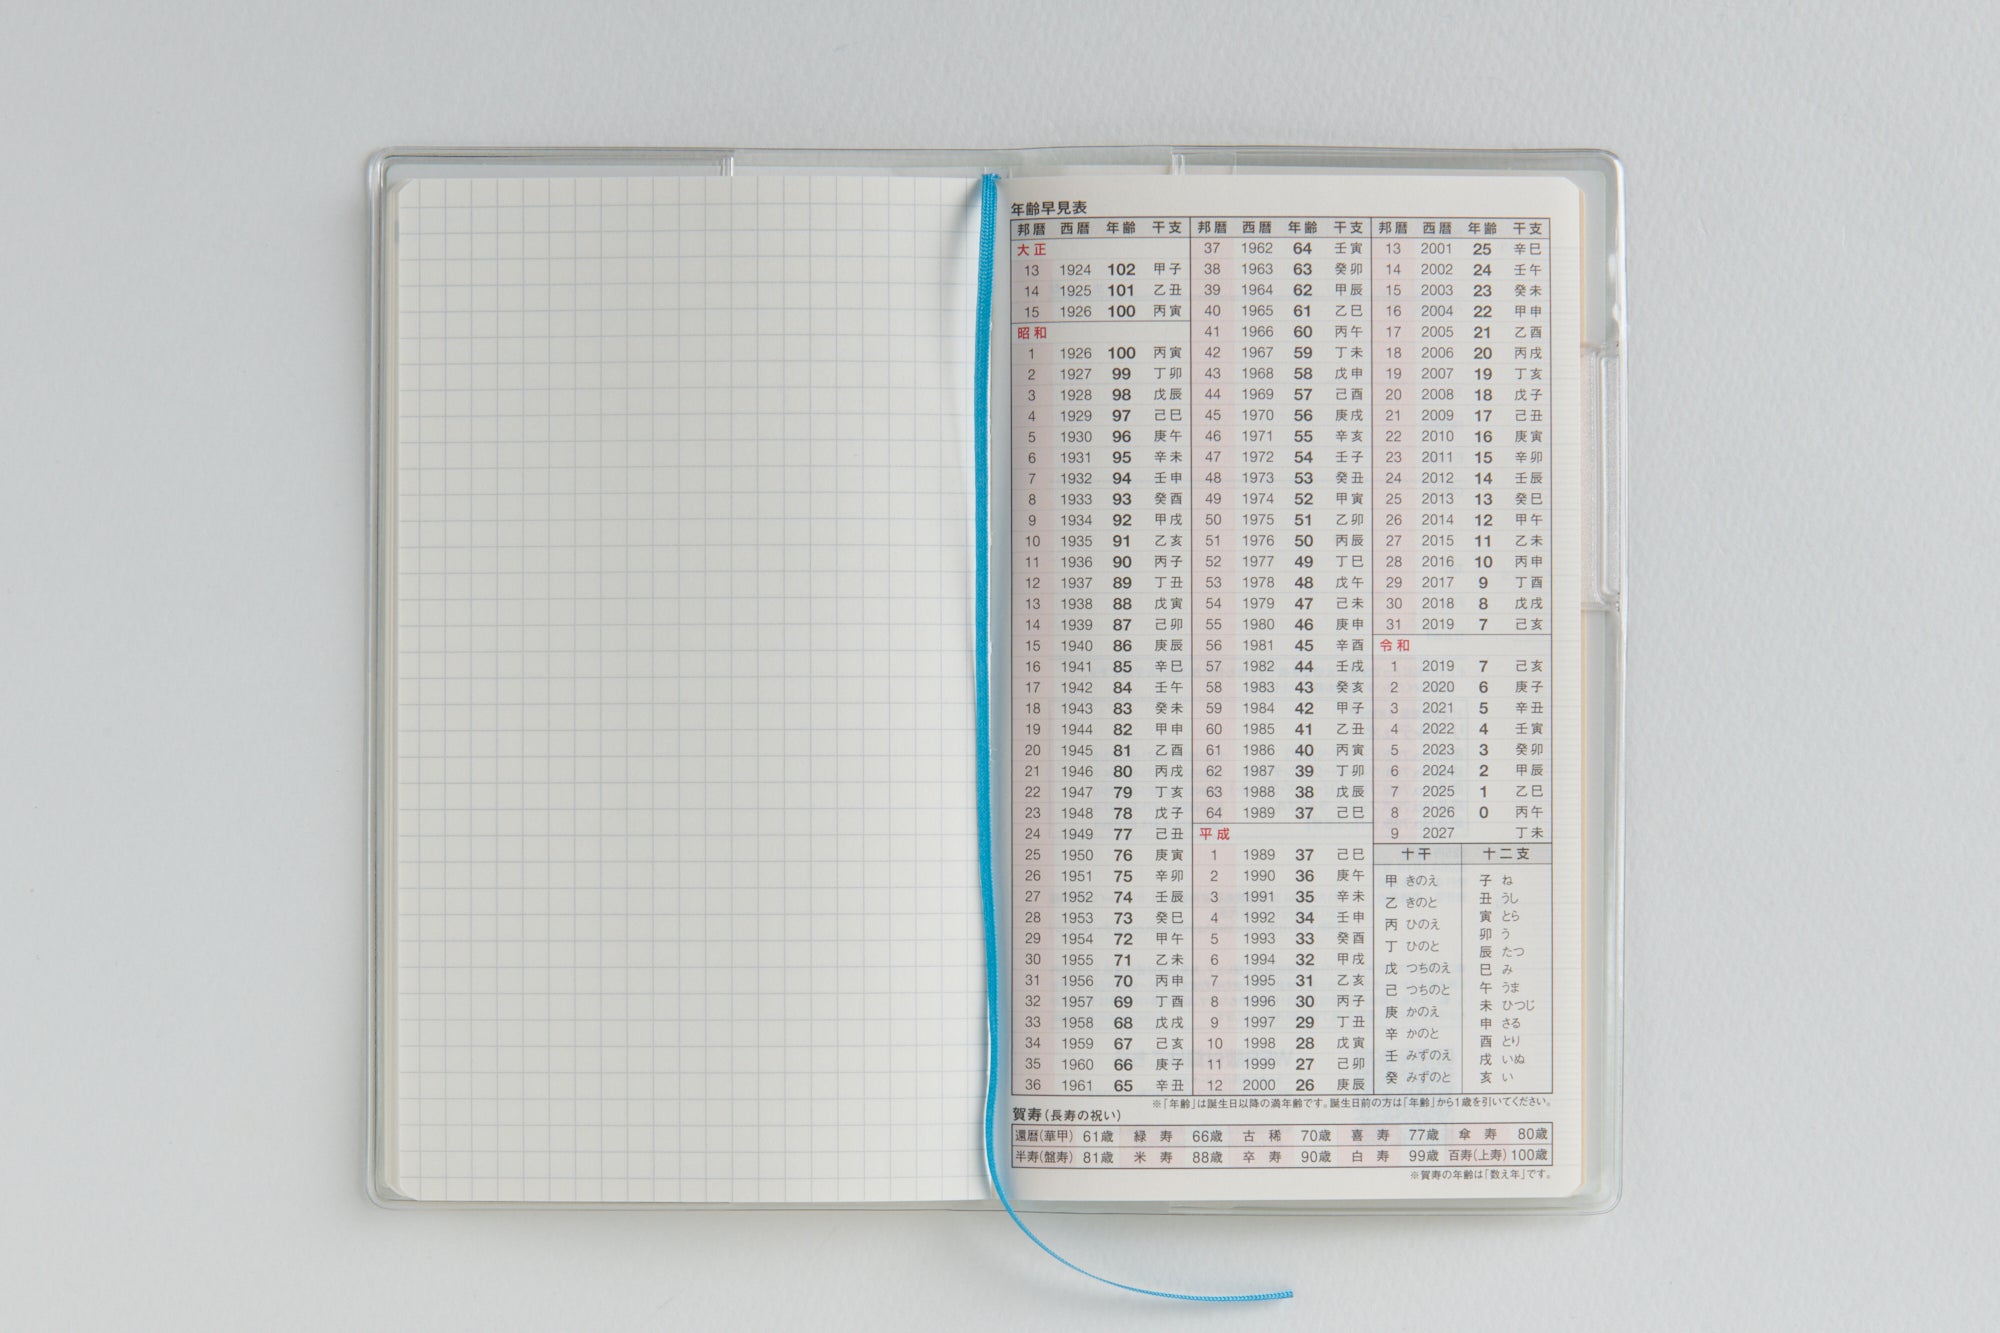 年齢早見表
邦暦 西暦 年齢 干支
大正
13 1924 102 甲子
14 1925 101 乙丑
15 1926 100 丙寅
昭和
1 1926 100 丙寅
2 1927 99 丁卯
3 1928 98 戊辰
4 1929 97 己巳
5 1930 96 庚午
6 1931 95 辛未
7 1932 94 壬申
8 1933 93 癸酉
9 1934 92 甲戌
10 1935 91 乙亥
11 1936 90 丙子
12 1937 89 丁丑
13 1938 88 戊寅
14 1939 87 己卯
15 1940 86 庚辰
16 1941 85 辛巳
17 1942 84 壬午
18 1943 83 癸未
19 1944 82 甲申
20 1945 81 乙酉
21 1946 80 丙戌
22 1947 79 丁亥
23 1948 78 戊子
24 1949 77 己丑
25 1950 76 庚寅
26 1951 75 辛卯
27 1952 74 壬辰
28 1953 73 癸巳
29 1954 72 甲午
30 1955 71 乙未
31 1956 70 丙申
32 1957 69 丁酉
33 1958 68 戊戌
34 1959 67 己亥
35 1960 66 庚子
36 1961 65 辛丑
邦暦 西暦 年齢 干支
37 1962 64 壬寅
38 1963 63 癸卯
39 1964 62 甲辰
40 1965 61 乙巳
41 1966 60 丙午
42 1967 59 丁未
43 1968 58 戊申
44 1969 57 己酉
45 1970 56 庚戌
46 1971 55 辛亥
47 1972 54 壬子
48 1973 53 癸丑
49 1974 52 甲寅
50 1975 51 乙卯
51 1976 50 丙辰
52 1977 49 丁巳
53 1978 48 戊午
54 1979 47 己未
55 1980 46 庚申
56 1981 45 辛酉
57 1982 44 壬戌
58 1983 43 癸亥
59 1984 42 甲子
60 1985 41 乙丑
61 1986 40 丙寅
62 1987 39 丁卯
63 1988 38 戊辰
64 1989 37 己巳
平成
1 1989 37 己巳
2 1990 36 庚午
3 1991 35 辛未
4 1992 34 壬申
5 1993 33 癸酉
6 1994 32 甲戌
7 1995 31 乙亥
8 1996 30 丙子
9 1997 29 丁丑
10 1998 28 戊寅
11 1999 27 己卯
12 2000 26 庚辰
邦暦 西暦 年齢 干支
13 2001 25 辛巳
14 2002 24 壬午
15 2003 23 癸未
16 2004 22 甲申
17 2005 21 乙酉
18 2006 20 丙戌
19 2007 19 丁亥
20 2008 18 戊子
21 2009 17 己丑
22 2010 16 庚寅
23 2011 15 辛卯
24 2012 14 壬辰
25 2013 13 癸巳
26 2014 12 甲午
27 2015 11 乙未
28 2016 10 丙申
29 2017 9 丁酉
30 2018 8 戊戌
31 2019 7 己亥
令和
1 2019 7 己亥
2 2020 6 庚子
3 2021 5 辛丑
4 2022 4 壬寅
5 2023 3 癸卯
6 2024 2 甲辰
7 2025 1 乙巳
8 2026 0 丙午
9 2027 丁未
十干
甲 きのえ
乙 きのと
丙 ひのえ
丁 ひのと
戊 つちのえ
己 つちのと
庚 かのえ
辛 かのと
壬 みずのえ
癸 みずのと
十二支
子 ね
丑 うし
寅 とら
卯 う
辰 たつ
巳 み
午 うま
未 ひつじ
申 さる
酉 とり
戌 いぬ
亥 い
※「年齢」は誕生日以降の満年齢です。誕生日前の方は「年齢」から1歳を引いてください。
賀寿(長寿の祝い)
還暦(華甲) 61歳 緑寿 66歳 古稀 70歳 喜寿 77歳 傘寿 80歳
半寿(盤寿) 81歳 米寿 88歳 卒寿 90歳 白寿 99歳 百寿(上寿) 100歳
※賀寿の年齢は「数え年」です。